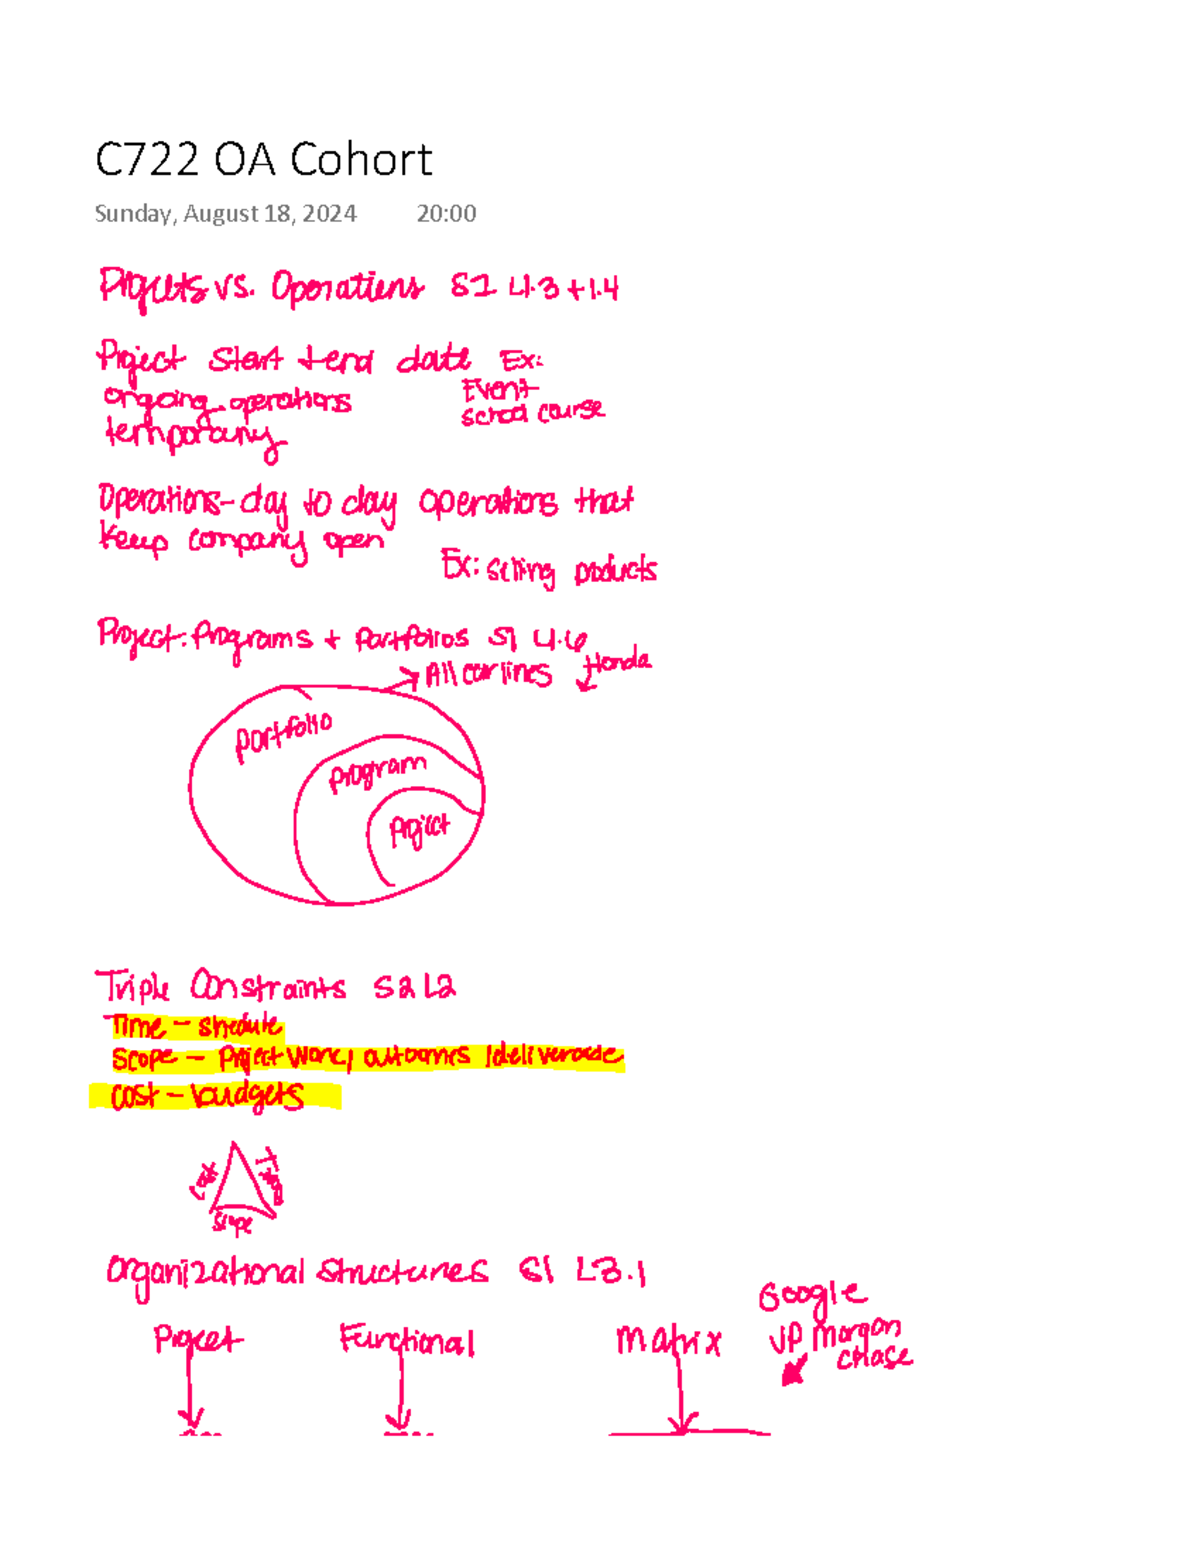 C722 OA Cohort
Sunday, August 18, 2024 20:00
Projects vs. Operations S1 L1.3 + 1.4
Project Start + end date Ex:
ongoing operations Event
temporary School course
Operations - day to day operations that
keep company open
Ex: selling products
Project: Programs + Portfolios S1 L1.6
All car lines Honda
portfolio
program
project
Triple Constraints S2 L2
Time - shedule
Scope - Project work, outcomes /
Cost - budgets
Cost Time
Scope
Organizational Structures S1 L3.1
Google
Project Functional Matrix JP Morgan
Chase